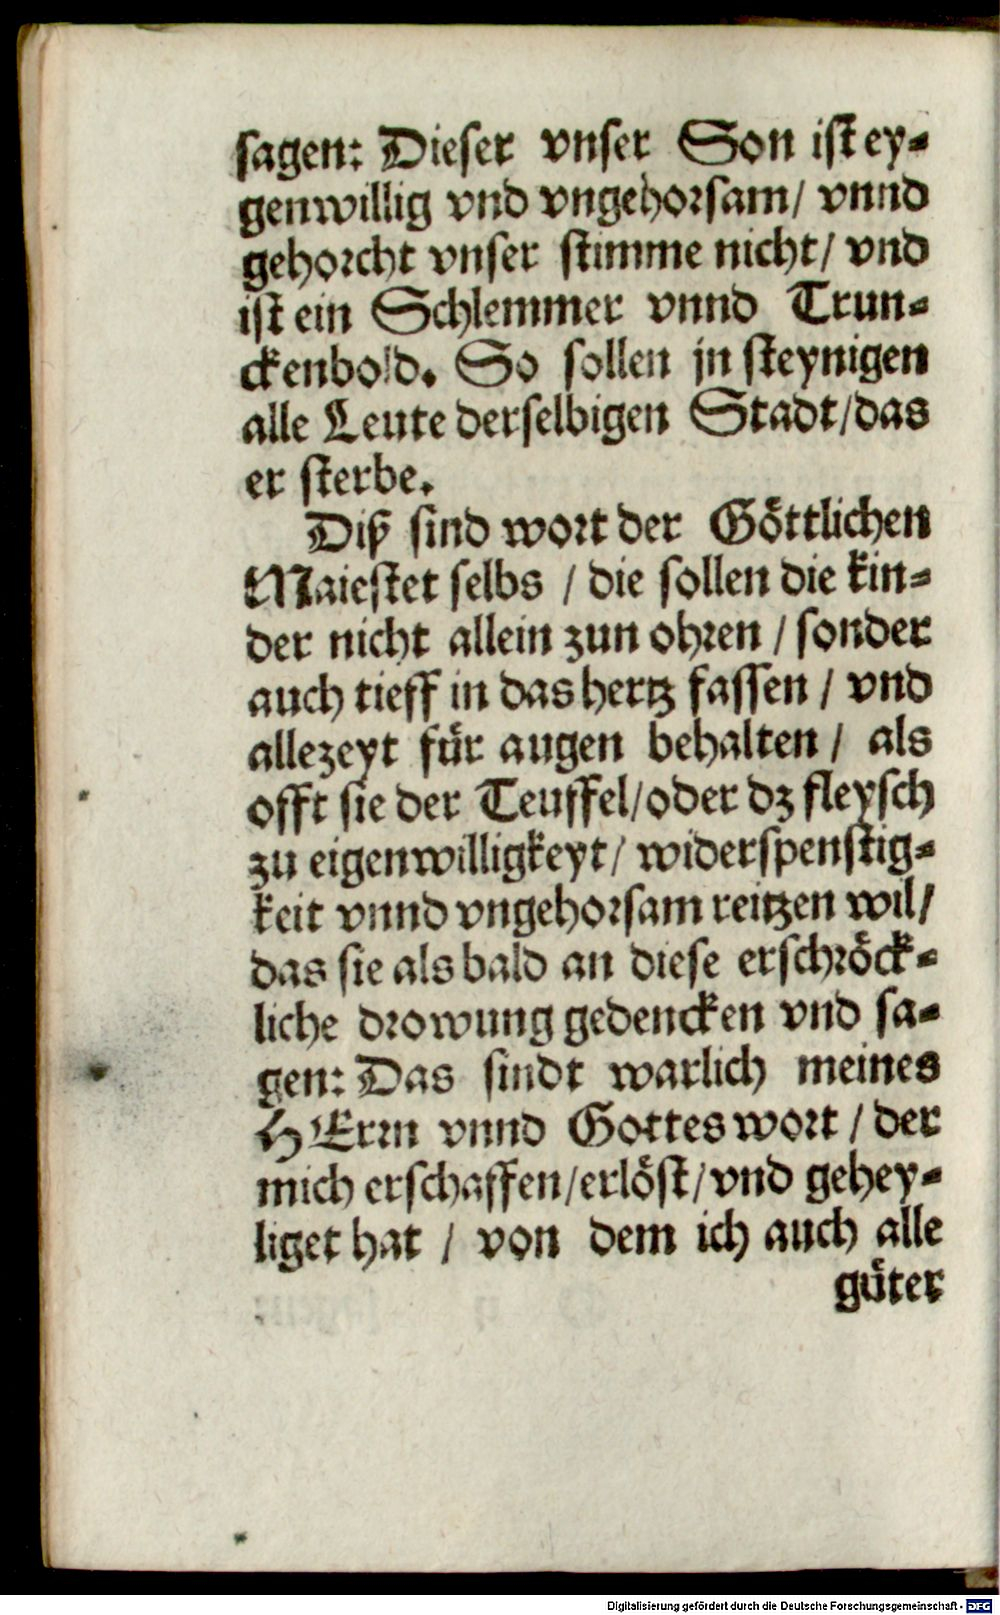 sagen: Dieser vnser Son ist ey-
genwillig vnd vngehorsam/ vnnd
gehorcht vnser stimme nicht/ vnd
ist ein Schlemmer vnnd Trun-
ckenbold. So sollen jn steynigen
alle Leute derselbigen Stadt/das
er sterbe.
Diß sind wort der Göttlichen
Maiestet selbs / die sollen die kin-
der nicht allein zun ohren / sonder
auch tieff in das hertz fassen / vnd
allezeyt für augen behalten / als
offt sie der Teuffel/oder dz fleysch
zu eigenwilligkeyt/ widerspenstig-
keit vnnd vngehorsam reitzen wil/
das sie als bald an diese erschröck-
liche drowung gedencken vnd sa-
gen: Das sindt warlich meines
HErrn vnnd Gottes wort / der
mich erschaffen/erlöst/vnd gehey-
liget hat / von dem ich auch alle
güter
Digitalisierung gefördert durch die Deutsche Forschungsgemeinschaft - DFG